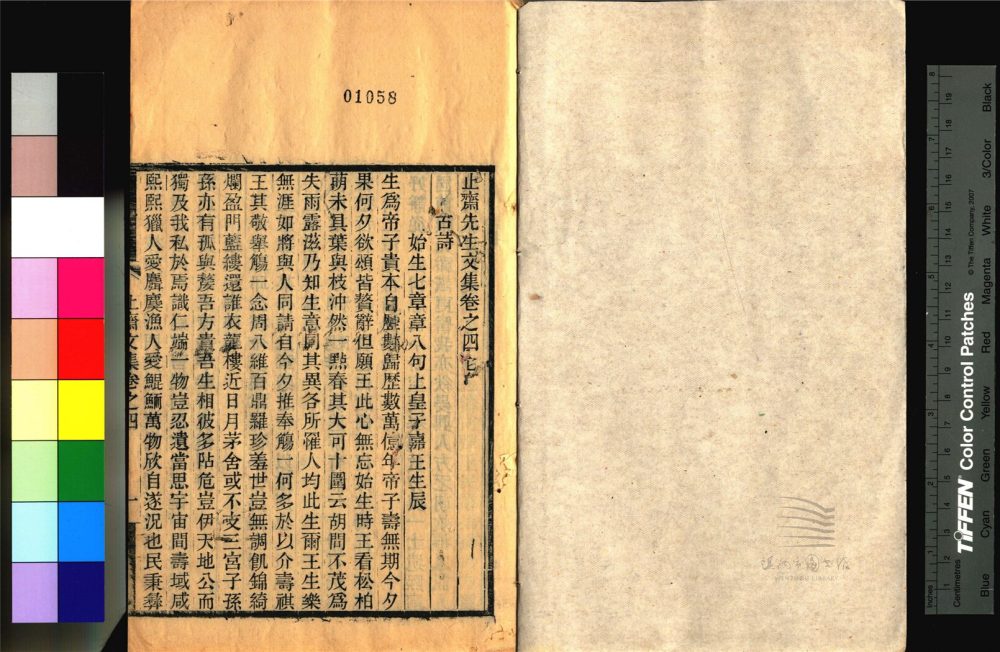 01058
止齋先生文集卷之四
古詩
始生七章章八句上皇子嘉王生辰
生爲帝子貴本自歷數歸歷數萬億年帝子壽無期今夕
果何夕欲頌皆贅辭但願王此心無忘始生時王看松柏
萌未具葉與枝沖然一點春其大可十圍云胡問不茂爲
失雨露滋乃知生意同其異各所罹人均此生爾王生樂
無涯如將與人同請自今夕推奉觴一何多於以介壽祺
王其敬舉觴一念周八維百鼎羅珍羞世豈無調飢錦綺
爛盈門藍縷還誰衣龍樓近日月茅舍或不支三宮子孫
孫亦有孤與嫠吾方貴吾生相彼多阽危豈伊天地公而
獨及我私於焉識仁端一物豈忍遺當思宇宙間壽域咸
熙熙獵人愛麛麌漁人愛鯤鮞萬物欣自遂況也民秉彝
止齋文集卷之四
一
WENZHOU LIBRARY
TIFFEN Color Control Patches
© The Tiffen Company, 2007
Inches
Centimetres
Blue
Cyan
Green
Yellow
Red
Magenta
White
3/Color
Black